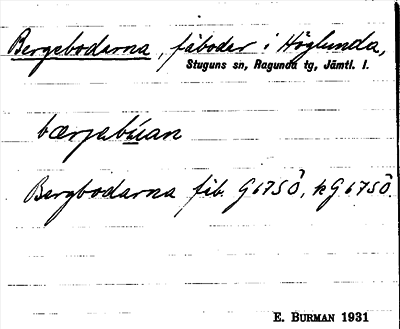 Bergebodarna, fäbodar i Höglunda,
Stuguns sn, Ragunda tg, Jämtl. l.
bærjebúan
Bergbodarna fäb. G 67 S Ö, k G 67 S Ö.
E. BURMAN 1931